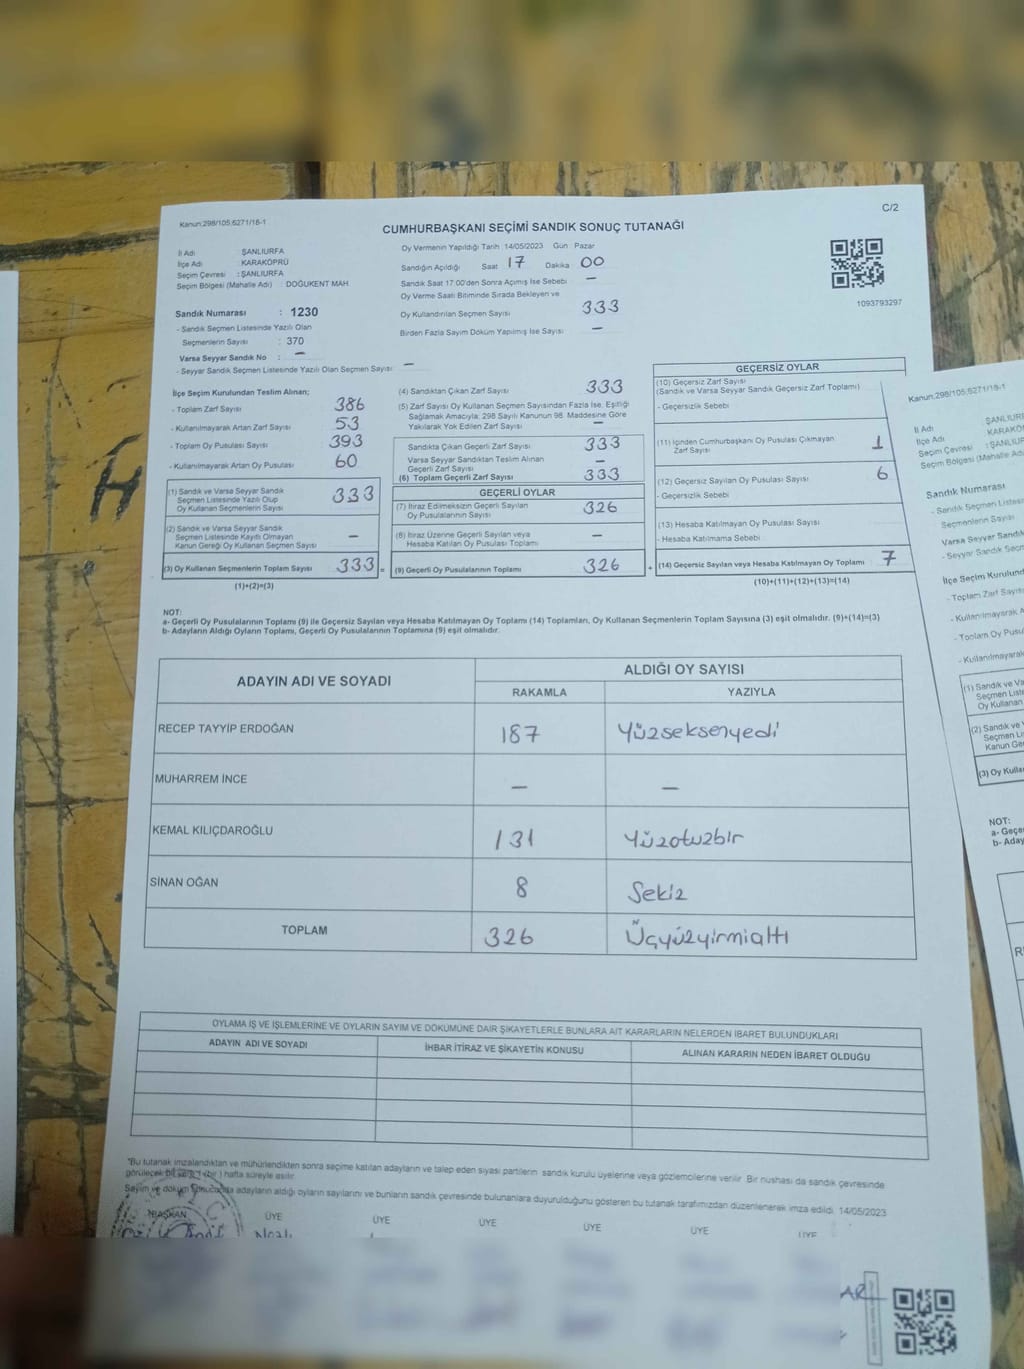 Kanun:298/105;6271/16-1
C/2
CUMHURBAŞKANI SEÇİMİ SANDIK SONUÇ TUTANAĞI
İl Adı : ŞANLIURFA
İlçe Adı : KARAKÖPRÜ
Seçim Çevresi : ŞANLIURFA
Seçim Bölgesi (Mahalle Adı) : DOĞUKENT MAH.
Oy Vermenin Yapıldığı Tarih : 14/05/2023 Gün : Pazar
Sandığın Açıldığı Saat 17 Dakika 00
Sandık Saat 17:00'den Sonra Açımış İse Sebebi —
Oy Verme Saati Bitiminde Sırada Bekleyen ve
Oy Kullandırılan Seçmen Sayısı 333
Birden Fazla Sayım Döküm Yapılmış İse Sayısı —
1093793297
Sandık Numarası : 1230
- Sandık Seçmen Listesinde Yazılı Olan
Seçmenlerin Sayısı : 370
Varsa Seyyar Sandık No : —
- Seyyar Sandık Seçmen Listesinde Yazılı Olan Seçmen Sayısı —
İlçe Seçim Kurulundan Teslim Alınan;
- Toplam Zarf Sayısı 386
- Kullanılmayarak Artan Zarf Sayısı 53
- Toplam Oy Pusulası Sayısı 393
- Kullanılmayarak Artan Oy Pusulası 60
(1) Sandık ve Varsa Seyyar Sandık
Seçmen Listesinde Yazılı Olup
Oy Kullanan Seçmenlerin Sayısı 333
(2) Sandık ve Varsa Seyyar Sandık
Seçmen Listesinde Kayıtlı Olmayan
Kanun Gereği Oy Kullanan Seçmen Sayısı —
(3) Oy Kullanan Seçmenlerin Toplam Sayısı 333 =
(1)+(2)=(3)
(4) Sandıktan Çıkan Zarf Sayısı 333
(5) Zarf Sayısı Oy Kullanan Seçmen Sayısından Fazla İse, Eşitliği
Sağlamak Amacıyla; 298 Sayılı Kanunun 98. Maddesine Göre
Yakılarak Yok Edilen Zarf Sayısı —
Sandıkta Çıkan Geçerli Zarf Sayısı 333
Varsa Seyyar Sandıktan Teslim Alınan
Geçerli Zarf Sayısı —
(6) Toplam Geçerli Zarf Sayısı 333
GEÇERLİ OYLAR
(7) İtiraz Edilmeksizin Geçerli Sayılan
Oy Pusulalarının Sayısı 326
(8) İtiraz Üzerine Geçerli Sayılan veya
Hesaba Katılan Oy Pusulası Toplamı —
(9) Geçerli Oy Pusulalarının Toplamı 326 +
GEÇERSİZ OYLAR
(10) Geçersiz Zarf Sayısı
(Sandık ve Varsa Seyyar Sandık Geçersiz Zarf Toplamı)
- Geçersizlik Sebebi
(11) İçinden Cumhurbaşkanı Oy Pusulası Çıkmayan
Zarf Sayısı 1
(12) Geçersiz Sayılan Oy Pusulası Sayısı 6
- Geçersizlik Sebebi
(13) Hesaba Katılmayan Oy Pusulası Sayısı
- Hesaba Katılmama Sebebi
(14) Geçersiz Sayılan veya Hesaba Katılmayan Oy Toplamı 7
(10)+(11)+(12)+(13)=(14)
NOT:
a- Geçerli Oy Pusulalarının Toplamı (9) ile Geçersiz Sayılan veya Hesaba Katılmayan Oy Toplamı (14) Toplamları, Oy Kullanan Seçmenlerin Toplam Sayısına (3) eşit olmalıdır. (9)+(14)=(3)
b- Adayların Aldığı Oyların Toplamı, Geçerli Oy Pusulalarının Toplamına (9) eşit olmalıdır.
ADAYIN ADI VE SOYADI
ALDIĞI OY SAYISI
RAKAMLA YAZIYLA
RECEP TAYYİP ERDOĞAN 187 Yüzseksenyedi
MUHARREM İNCE — —
KEMAL KILIÇDAROĞLU 131 Yüzotuzbir
SİNAN OĞAN 8 Sekiz
TOPLAM 326 Üçyüzyirmialtı
OYLAMA İŞ VE İŞLEMLERİNE VE OYLARIN SAYIM VE DÖKÜMÜNE DAİR ŞİKAYETLERLE BUNLARA AİT KARARLARIN NELERDEN İBARET BULUNDUKLARI
ADAYIN ADI VE SOYADI İHBAR İTİRAZ VE ŞİKAYETİN KONUSU ALINAN KARARIN NEDEN İBARET OLDUĞU
*Bu tutanak imzalandıktan ve mühürlendikten sonra seçime katılan adayların ve talep eden siyasi partilerin sandık kurulu üyelerine veya gözlemcilerine verilir. Bir nüshası da sandık çevresinde
görülecek bir yere 1 (bir) hafta süreyle asılır.
Sayım ve döküm sonucunda adayların aldığı oyların sayılarını ve bunların sandık çevresinde bulunanlara duyurulduğunu gösteren bu tutanak tarafımızdan düzenlenerek imza edildi. 14/05/2023
BAŞKAN ÜYE ÜYE ÜYE ÜYE ÜYE ÜYE
Kanun:298/105;6271/16-1
İl Adı : ŞANLIURF
İlçe Adı : KARAKÖP
Seçim Çevresi : ŞANLIUF
Seçim Bölgesi (Mahalle Adı)
Sandık Numarası
- Sandık Seçmen Listes
Seçmenlerin Sayısı
Varsa Seyyar Sandık
- Seyyar Sandık Seçm
İlçe Seçim Kurulund
- Toplam Zarf Sayıs
- Kullanılmayarak A
- Toplam Oy Pusu
- Kullanılmayarak
(1) Sandık ve Va
Seçmen Liste
Oy Kullanan
(2) Sandık ve
Seçmen Lis
Kanun Ge
(3) Oy Kulla
NOT:
a- Geçe
b- Aday
R